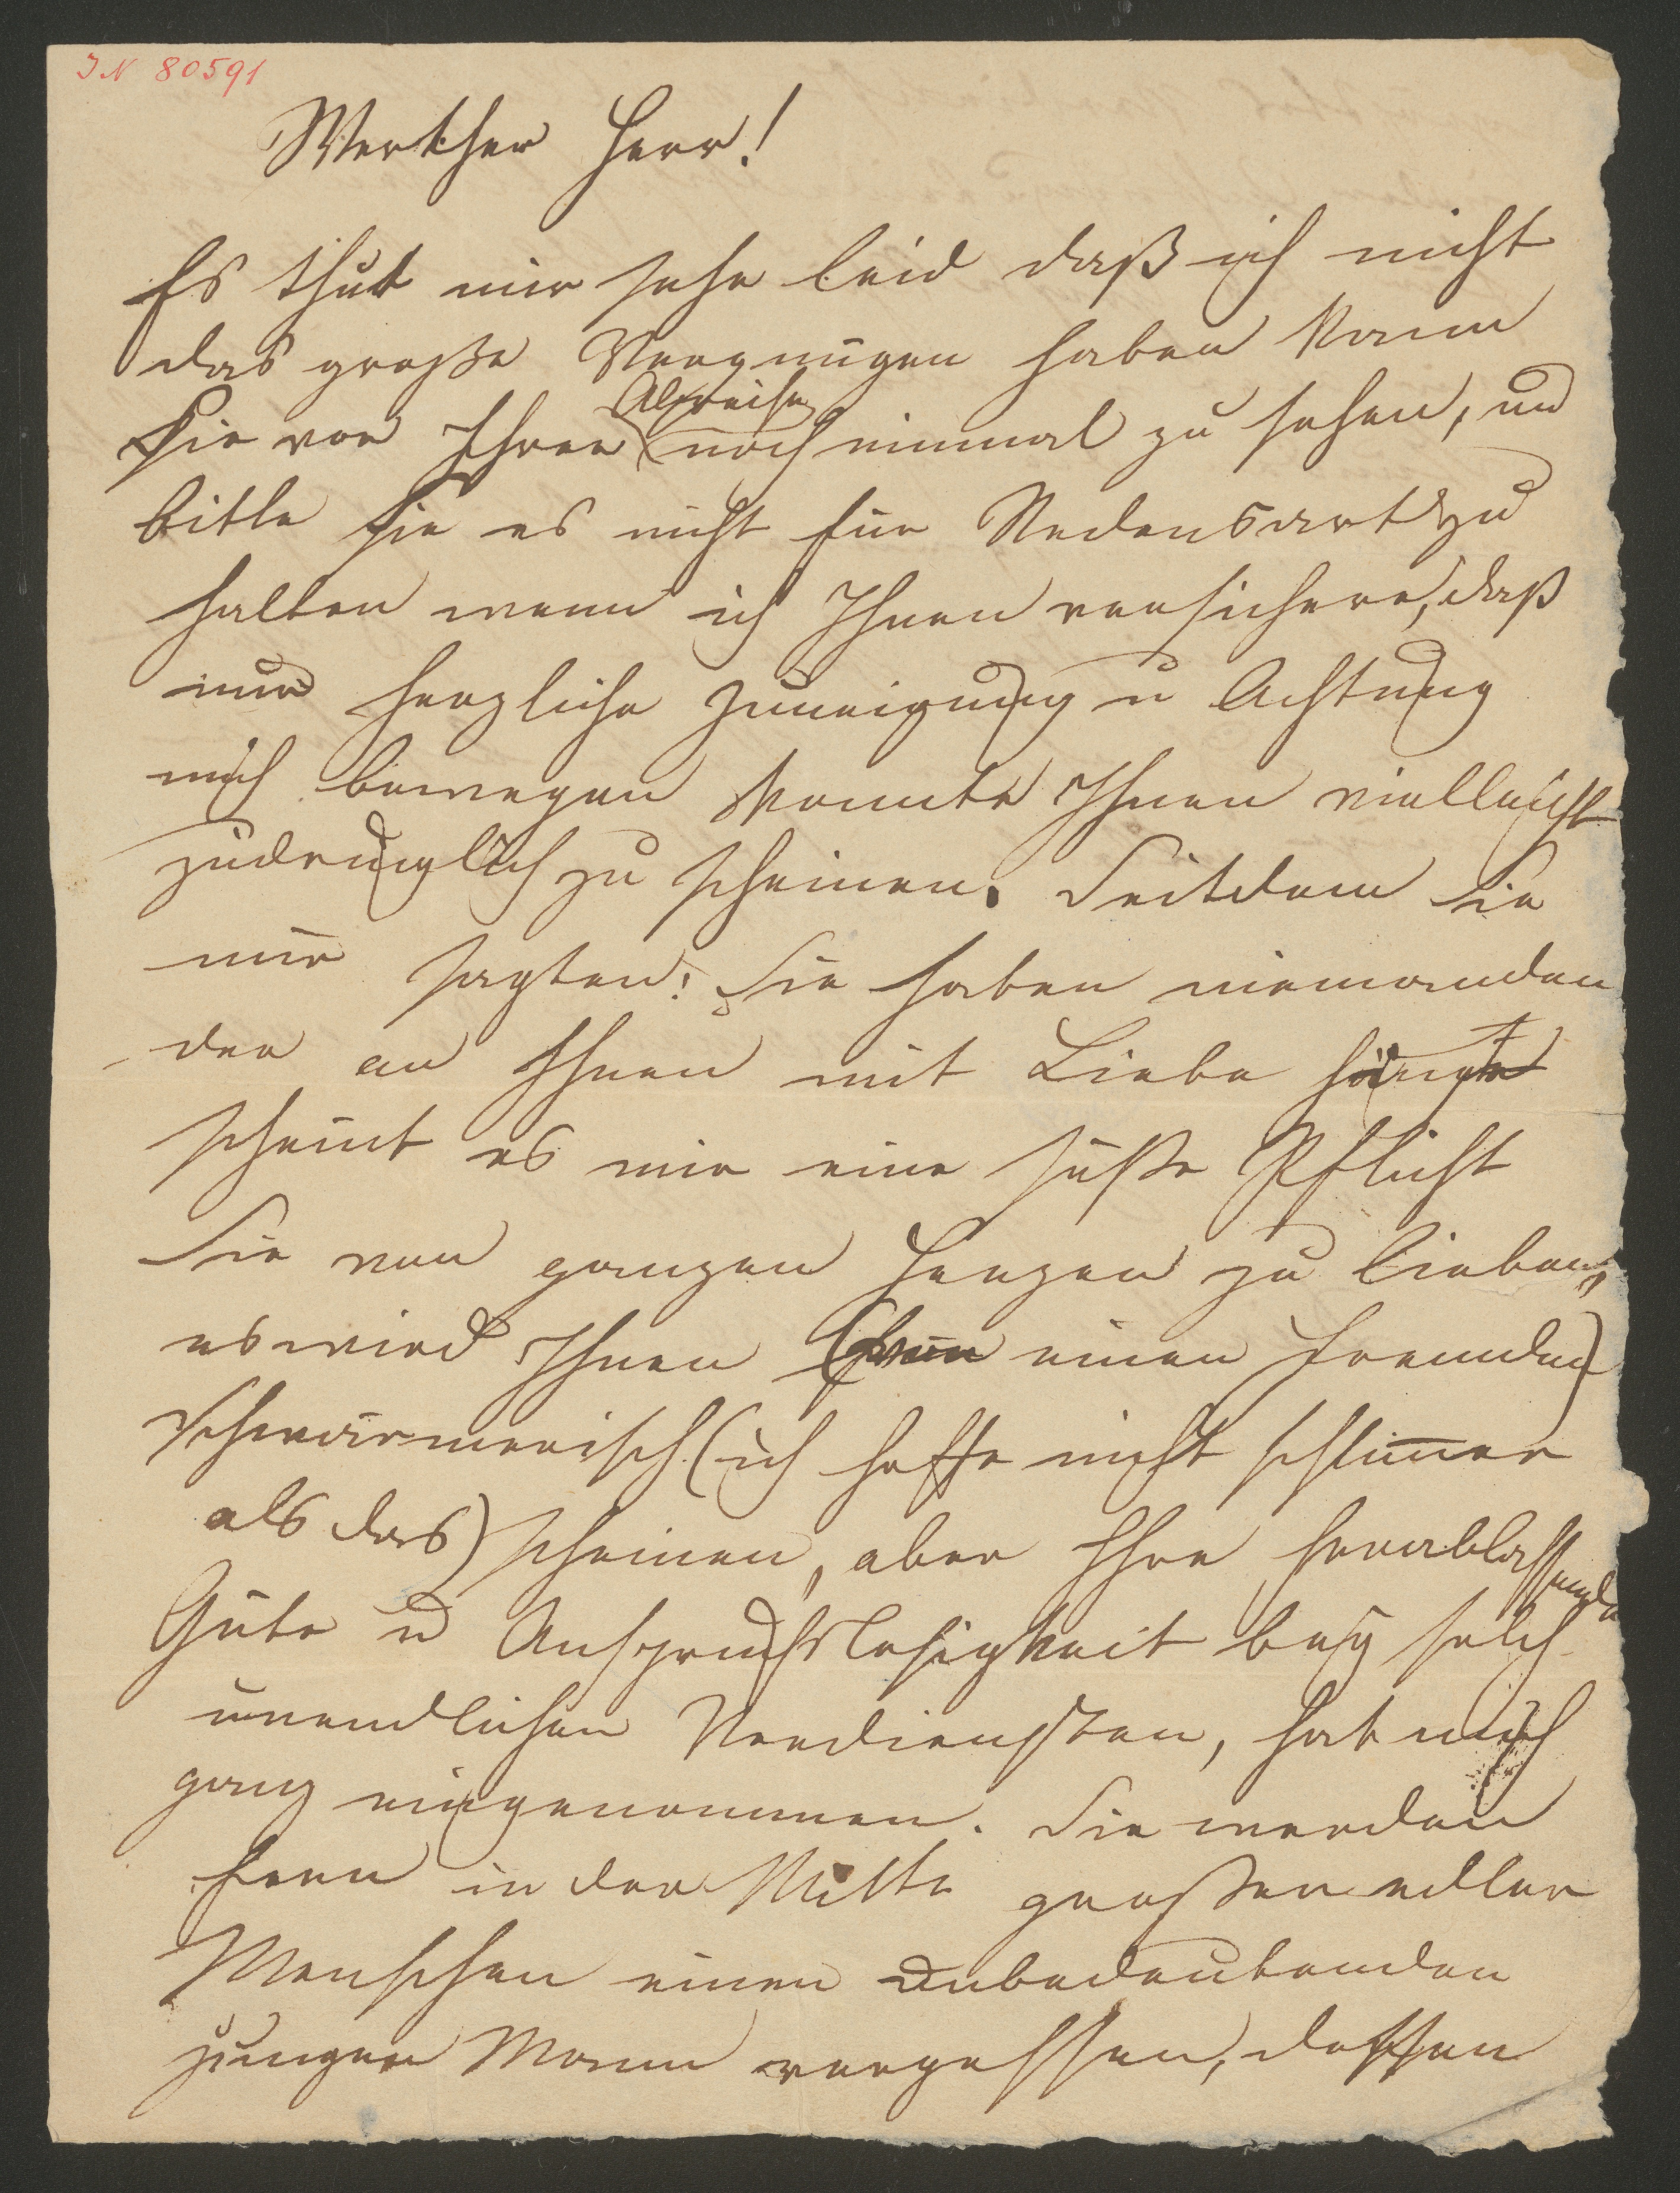 IN 80591
Werther Herr!
Es thut mir sehr leid daß ich nicht
das große Vergnügen haben kann
Abreise
Sie vor Ihrer noch einmal zu sehen, und
bitte Sie es nicht für Redensart zu
halten wenn ich Ihnen versichere, daß
nur herzliche Zuneigung u Achtung
mich bewegen konnte Ihnen vielleicht
zudringlich zu scheinen. Seitdem Sie
mir sagten: Sie haben niemanden
der an Ihnen mit Liebe hängt
scheint es mir eine süße Pflicht
Sie von ganzen Herzen zu lieben,
es wird Ihnen ( einen Fremden)
schwärmerisch (ich hoffe nicht schlim̅er
als das) scheinen, aber Ihre herablassende
Güte u Anspruchslosigkeit bey solch
unendlichen Verdiensten, hat mich
ganz eingenommen. Sie werden
fern in der Mitte großer edler
Menschen einen unbedeutenden
jungen Mann vergessen, dessen